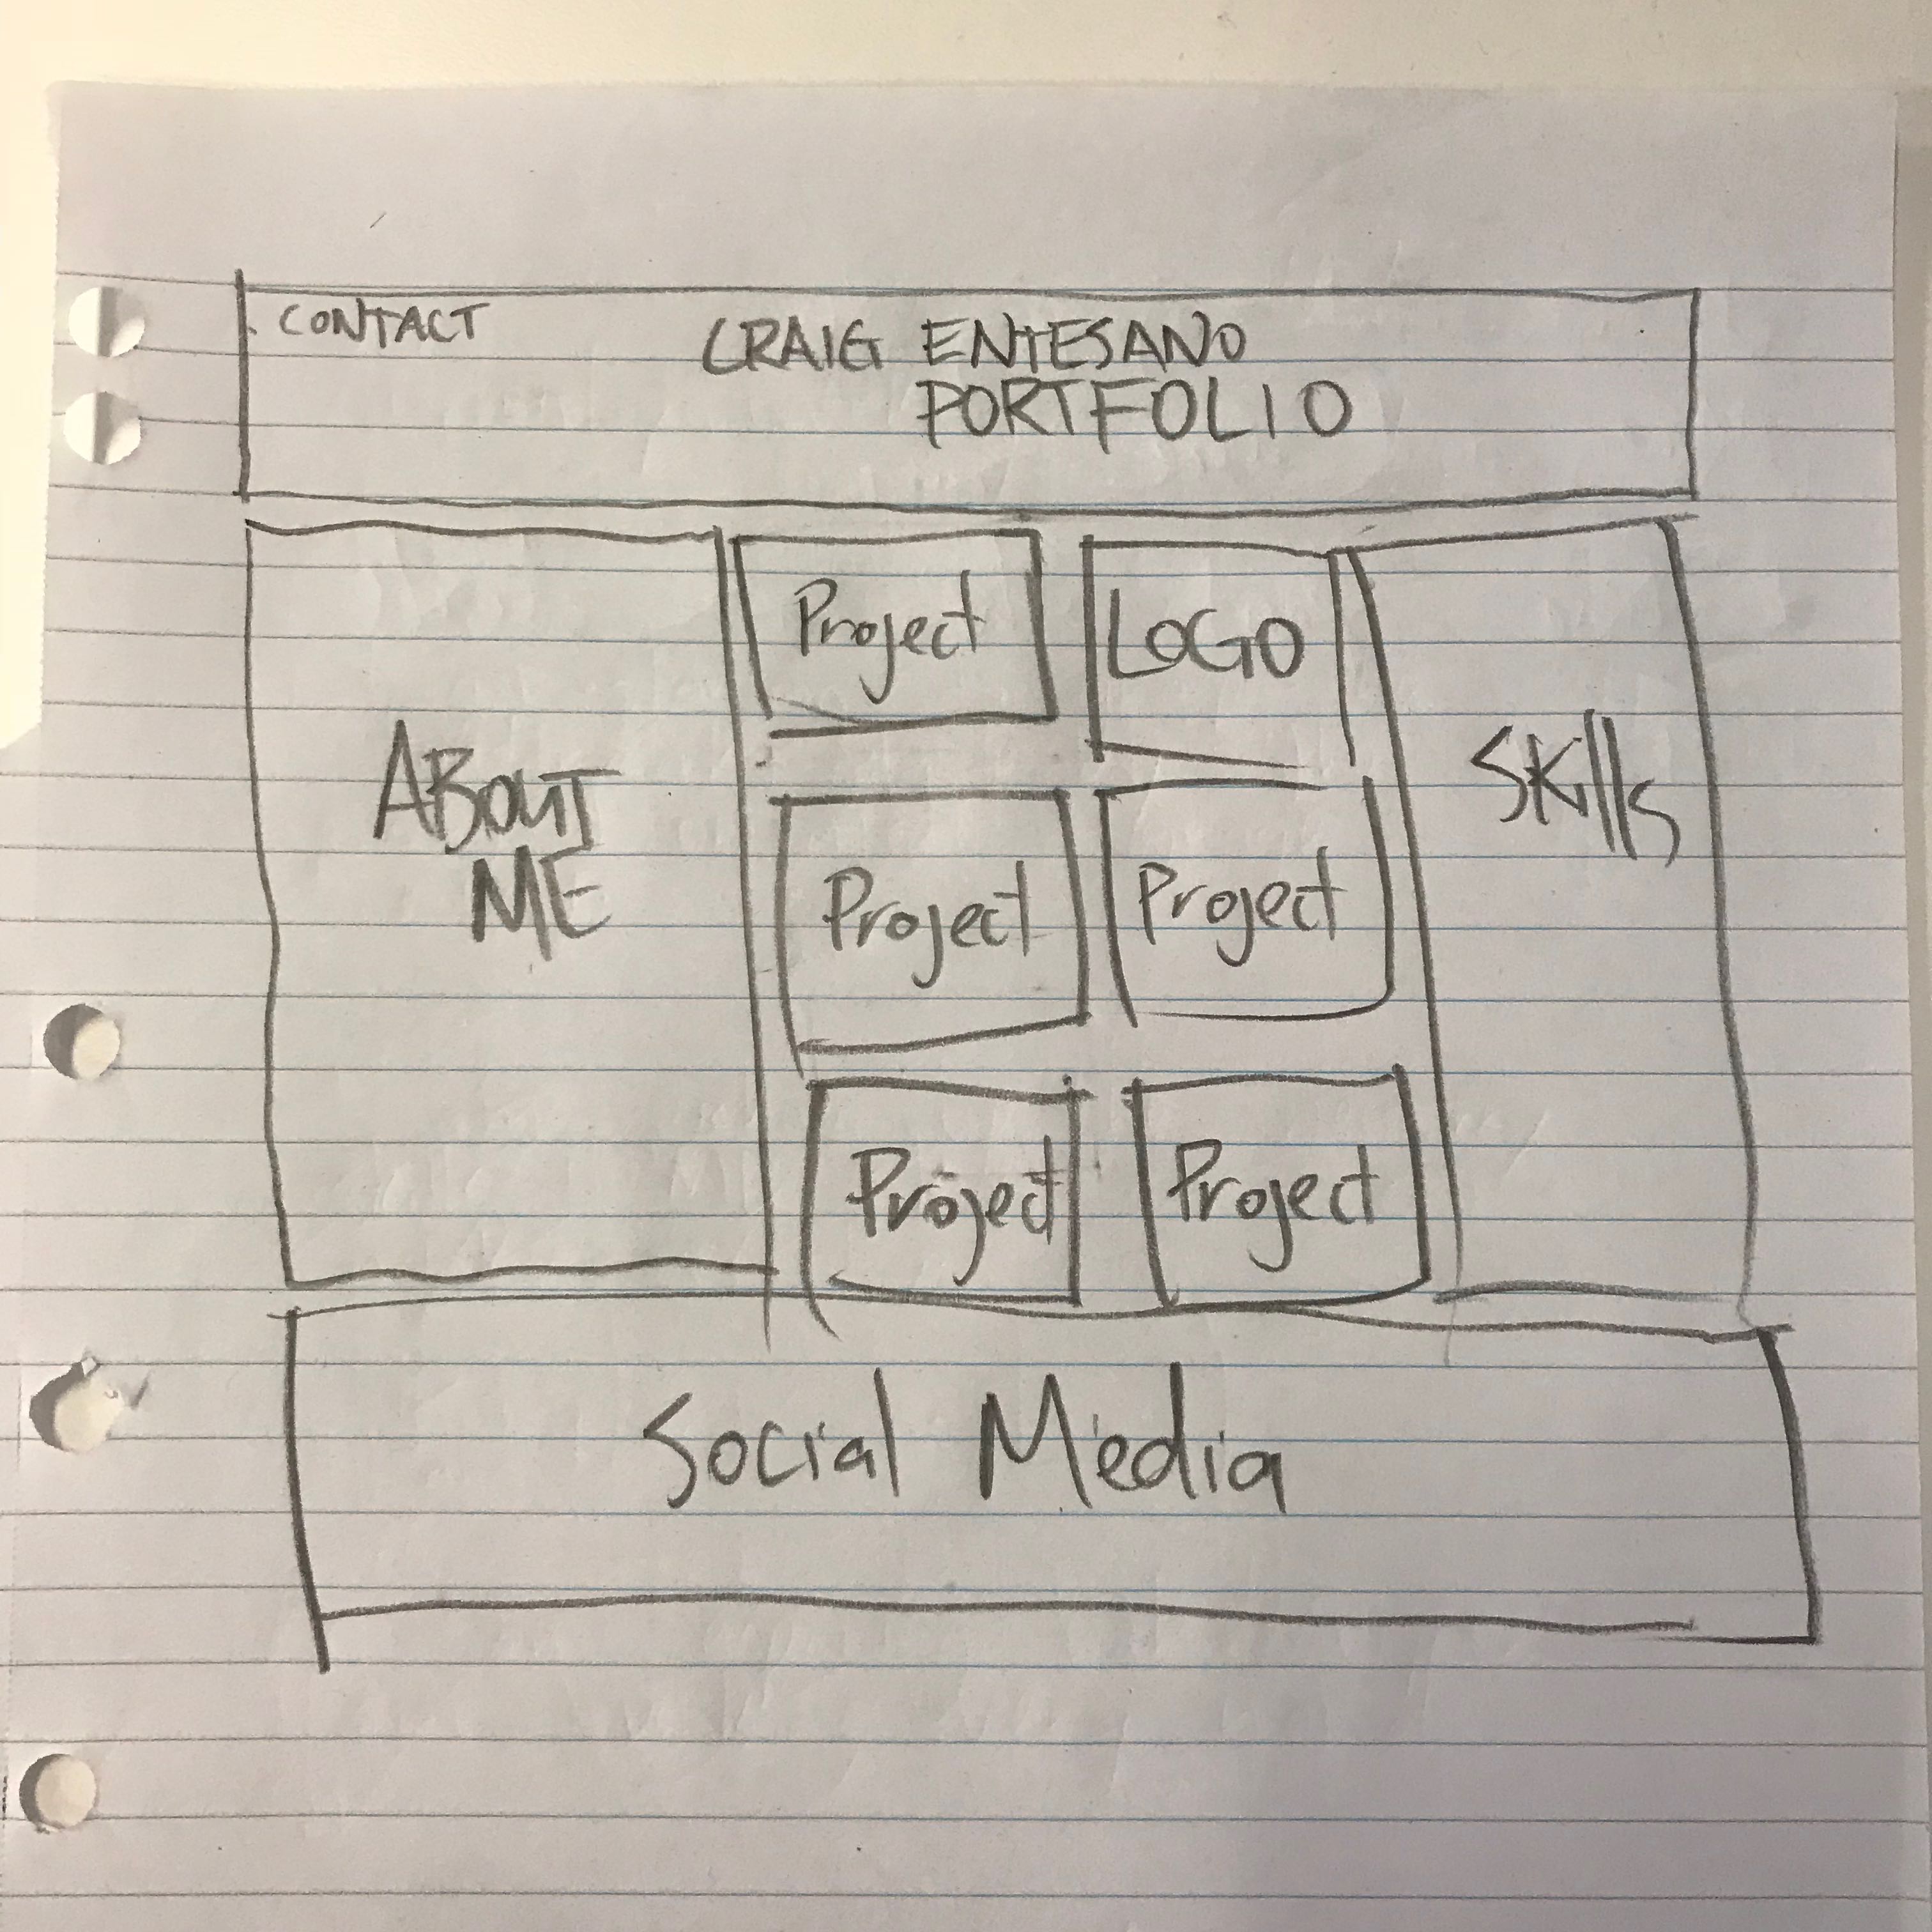 CONTACT
CRAIG ENTESANO
PORTFOLIO
ABOUT
ME
Project
LOGO
Project
Project
Project
Project
Skills
Social Media